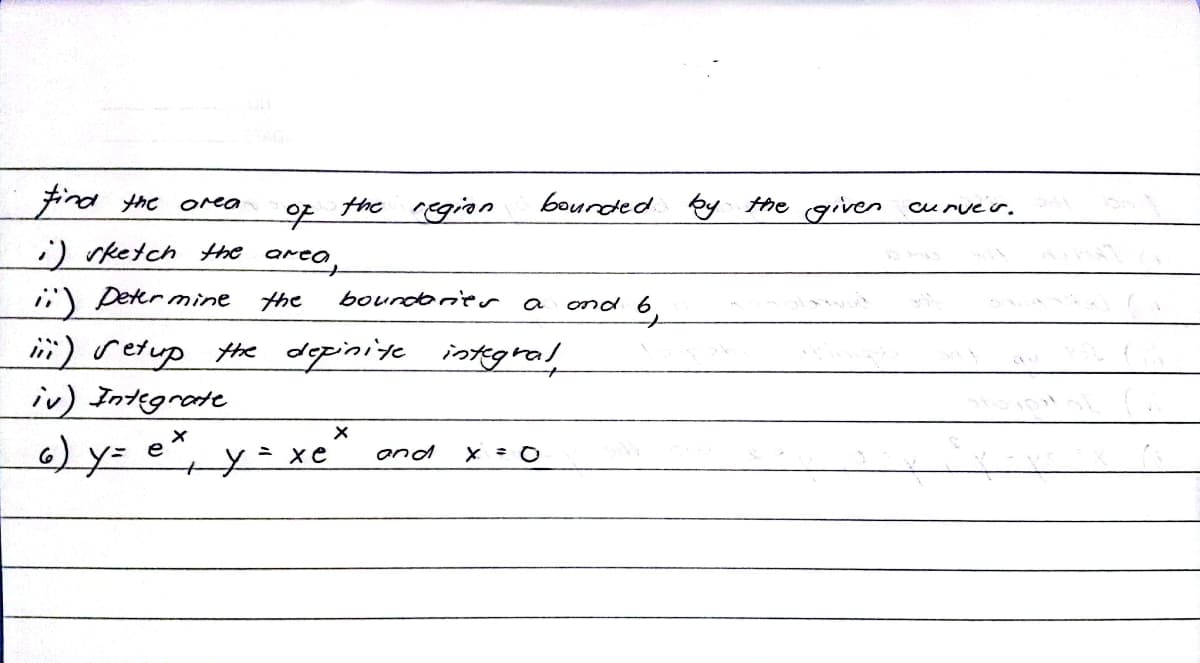 find the area of the region bounded by the given curves.
i) sketch the area,
ii) Determine the boundaries a and b,
iii) setup the definite integral,
iv) Integrate
6) y = eˣ, y = xeˣ and x = 0